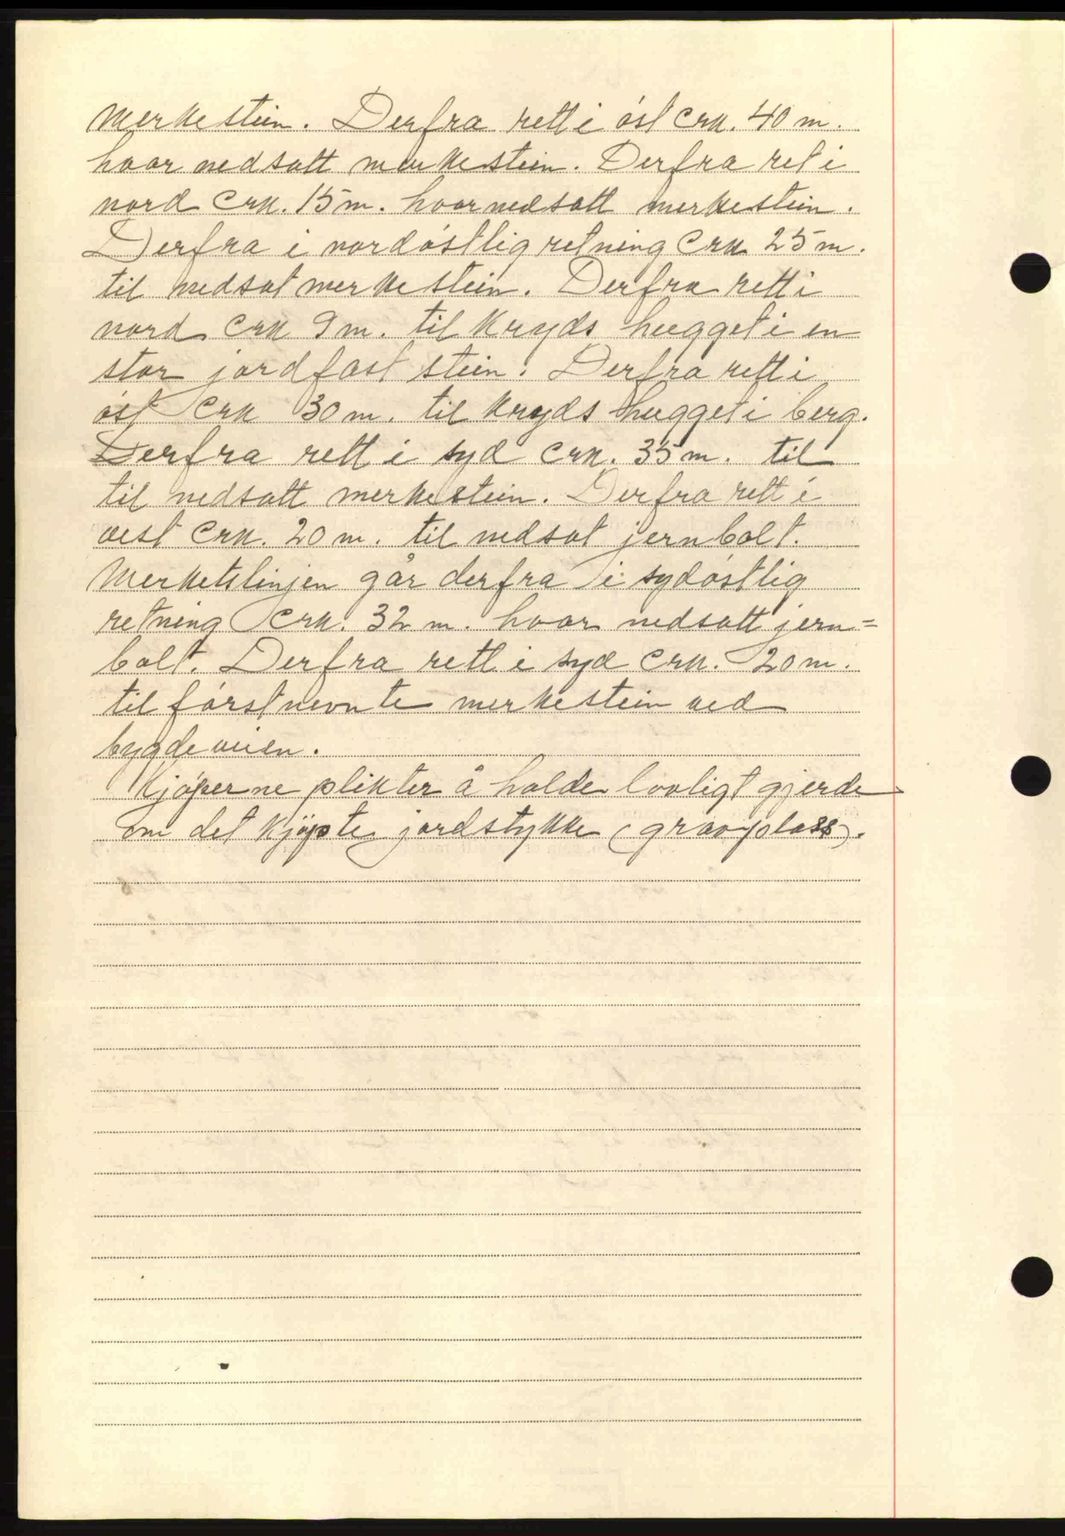 merkestein. Derfra rett i øst crk. 40 m.
hvor nedsatt merkestein. Derfra ret i
nord crk. 15 m. hvor nedsatt merkestein.
Derfra i nordøstlig retning crk 25 m.
til nedsat merkestein. Derfra rett i
nord crk 9 m. til kryds hugget i en
stor jordfast stein. Derfra rett i
øst crk 30 m. til kryds hugget i berg.
Derfra rett i syd crk. 35 m. til
til nedsatt merkestein. Derfra rett i
vest crk. 20 m. til nedsat jernbolt.
Merketslinjen går derfra i sydøstlig
retning crk. 32 m. hvor nedsatt jern=
bolt. Derfra rett i syd crk. 20 m.
til førstnevnte merkestein ved
bygdeveien.
Kjøperne plikter å holde lovligt gjerde
om det kjøpte jordstykke (gravplass).